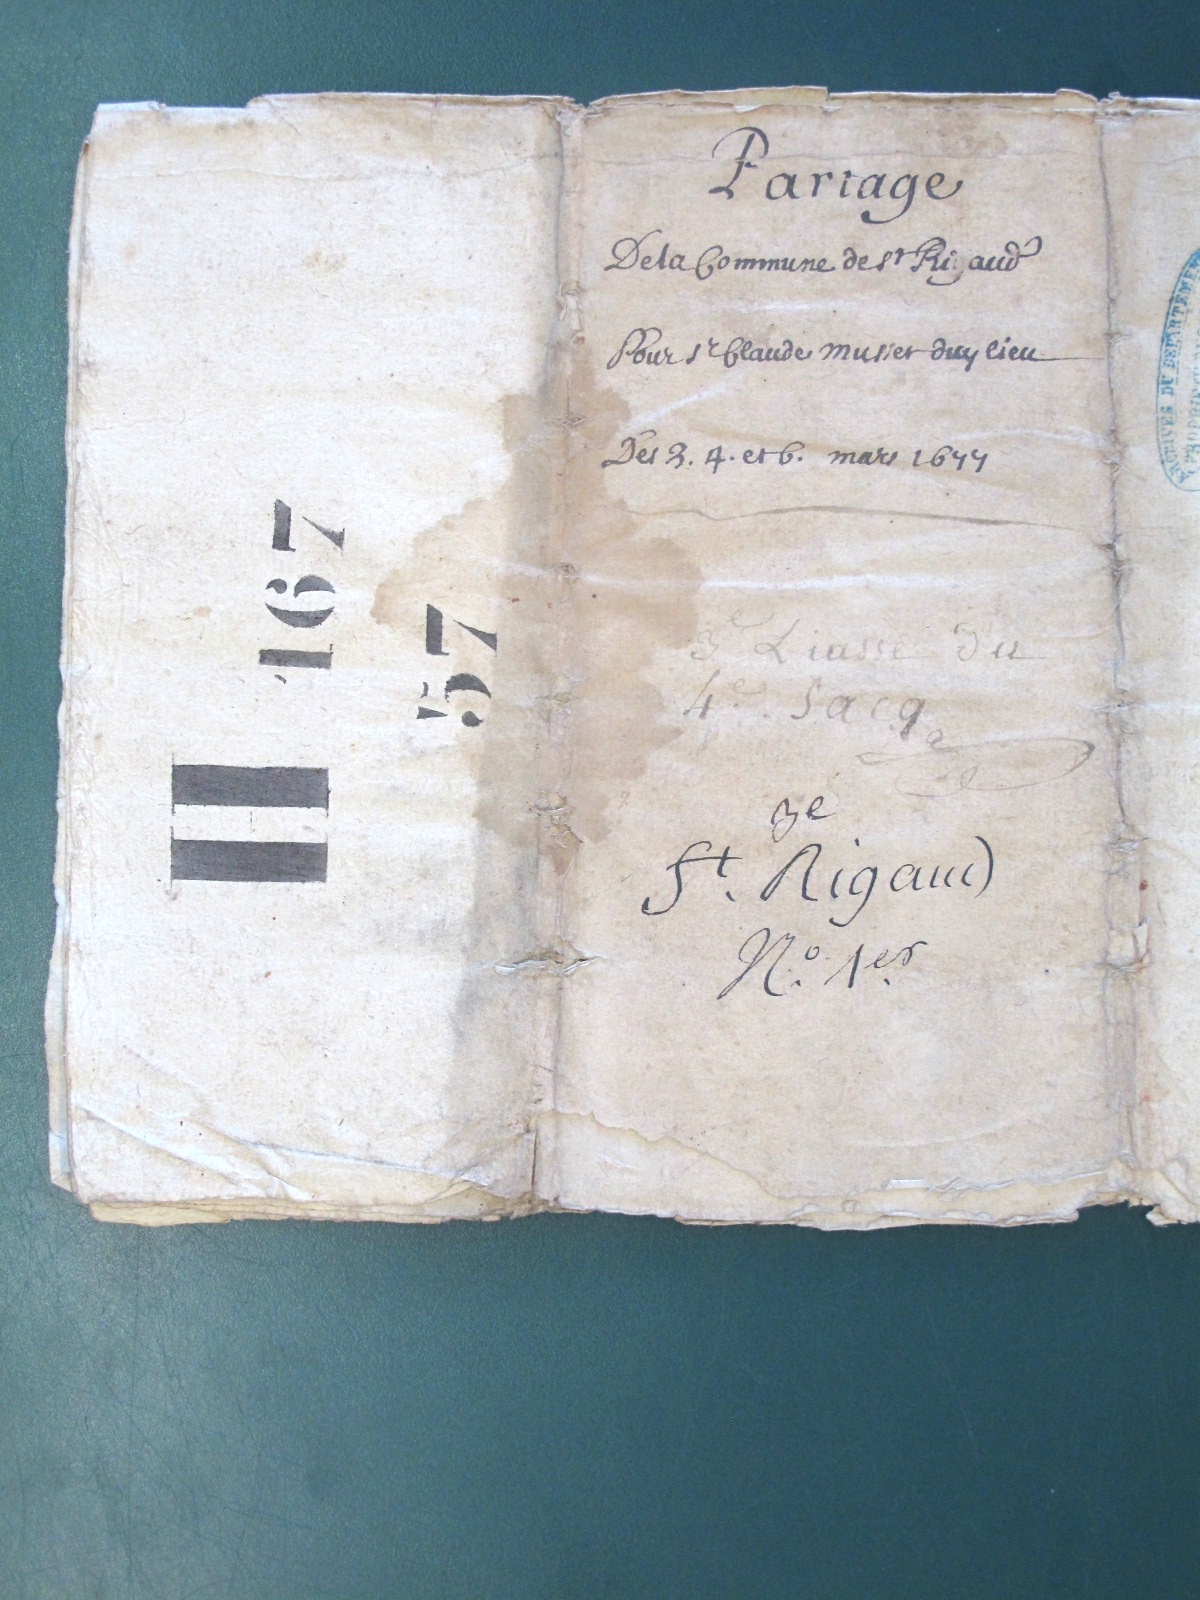 H 167
57
Partage
De la Commune de st Rigaud
Pour sr Claude musset duy lieu
Des 2. 4. et 6. mars 1677
3e Liasse du
4e. Sacq
3e
St. Rigaud
No. 1er.
ARCHIVES DU DÉPARTEMENT